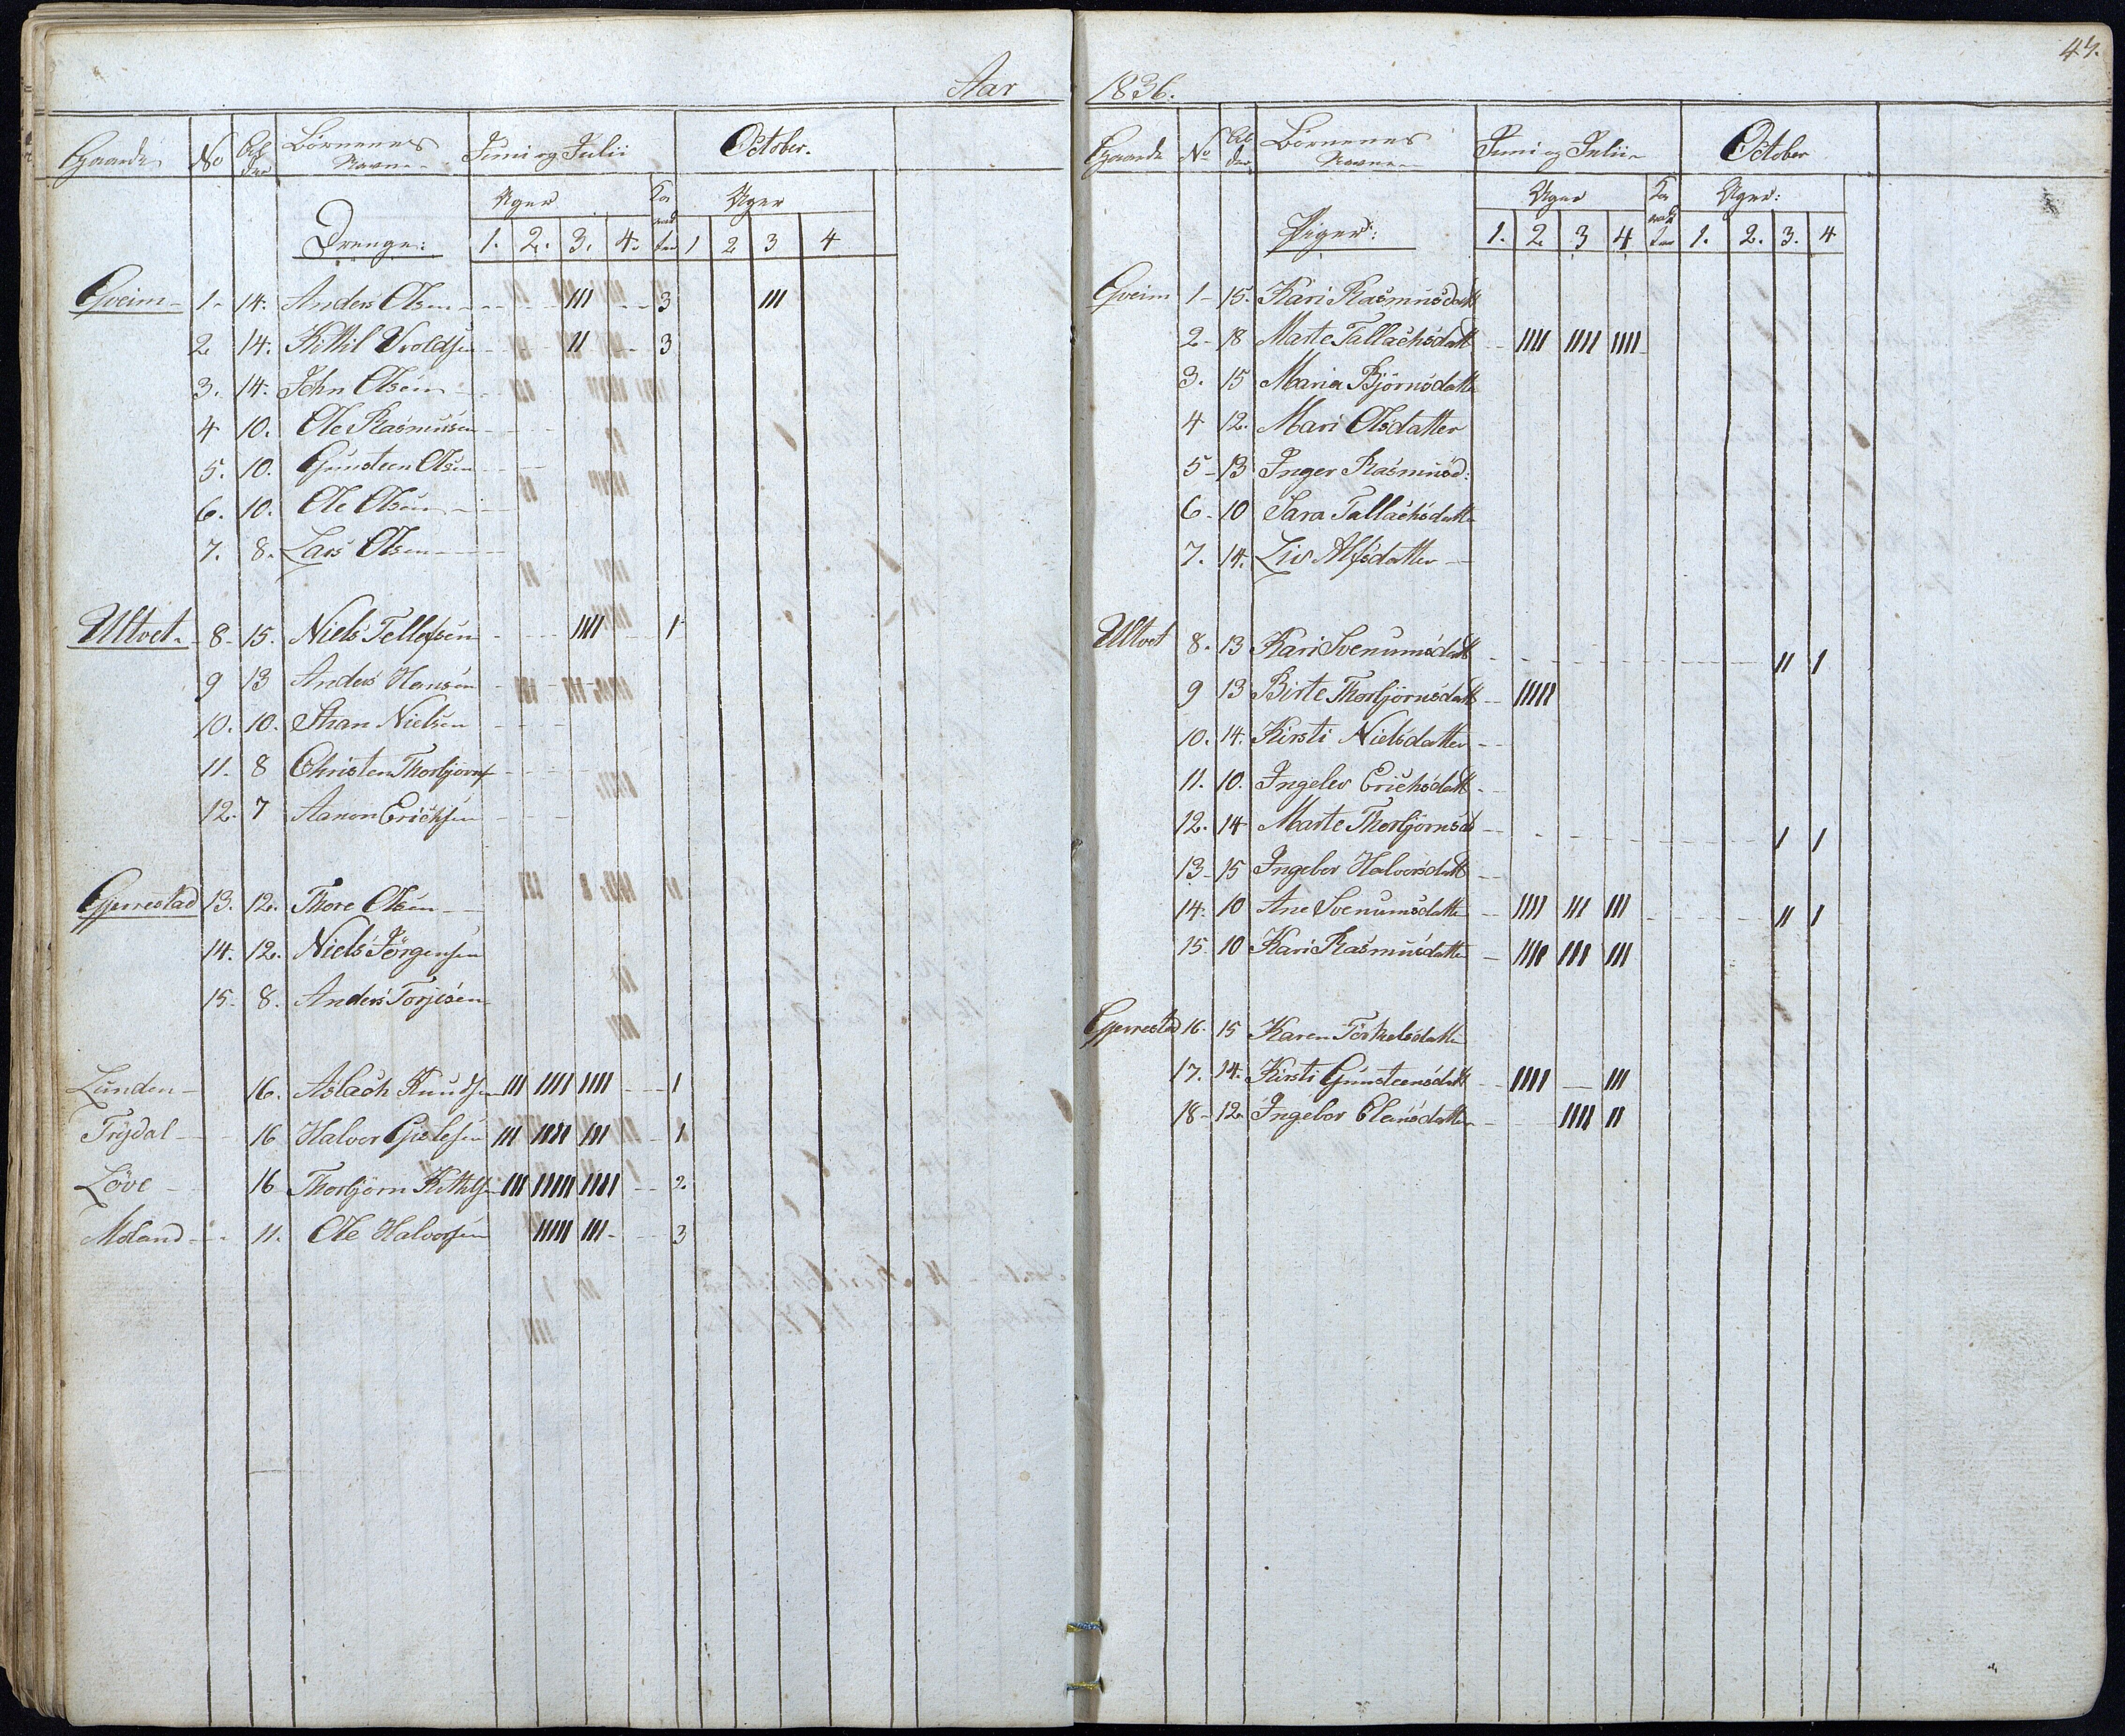 Aar
Gaarde No Al der Børnenes Navne Juni og Julii October.
Uger Ka rac ter Uger
Drenge: 1. 2. 3. 4. 1 2 3 4
Gveim 1 14. Anders Olsen III 3 III
2 14. Kittil Vroldsen II 3
3. 14. John Olsen
4 10. Ole Rasmusen
5. 10. Gunsteen Olsen
6. 10. Ole Olsen
7. 8. Lars Olsen
Ultvet 8 15. Niels Tellefsen IIII 1
9 13 Anders Hansen
10. 10. Sthan Nielsen
11. 8 Christen Thorbjørns
12. 7 Aanon Erichsen
Gjerrestad 13. 12. Thore Olsen
14. 12. Niels Jörgensen
15. 8. Anders Torjesen
Lunden 16. Aslach Knudsen III IIII IIII 1
Trydal 16 Halvor Gislesen III IIII III 1
Löve 16 Thorbjørn Kittelsen III IIIII IIII 2.
Moland 11. Ole Halvorsen IIIII III 3
47.
1836.
Gaarde No Al der Børnenes Navne Juni og Julii October
Uger Ka rak ter Uger:
Piger: 1. 2 3 4 1. 2. 3. 4
Gveim 1 15. Kari Rasmusdatt
2 18 Marte Tallachsdatt IIII IIII IIII
3. 15 Maria Bjørnsdatter
4 12. Mari Olsdatter
5 13 Inger Rasmusd:
6 10 Sara Tallachsdatter
7. 14. Liv Alfsdatter
Ultvet 8. 13 Kari Svenumsdatt II I
9 13 Birte Thorbjørnsdatt IIIII
10. 14. Kirsti Nielsdatter
11. 10. Ingelev Erichsdatt
12. 14 Marte Thorbjørnsd I I
13 15 Ingebor Halvorsdatt
14. 10 Ane Svenumsdatter IIII III III II I
15. 10 Kari Rasmusdatter IIII III III
Gjerrestad 16. 15 Karen Torkelsdatter
17. 14. Kirsti Gunsteensdatt IIII III
18 12 Ingebor Oleansdatter IIII II